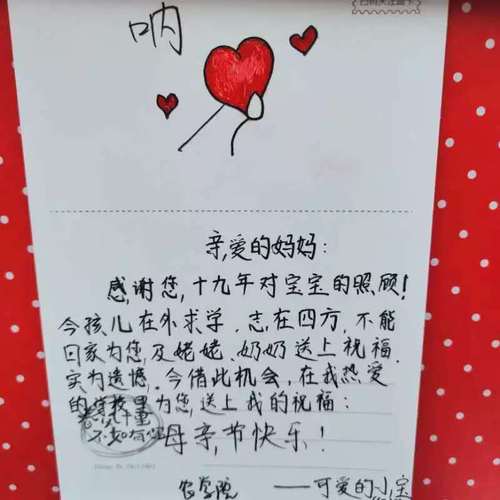 呐
亲爱的妈妈：
感谢您，十九年对宝宝的照顾！
今孩儿在外求学，志在四方，不能
回家为您及姥姥、奶奶送上祝福，
实为遗憾。今借此机会，在我热爱
的学校里为您，送上我的祝福：
母亲，节快乐！
农学院 ——可爱的小宝